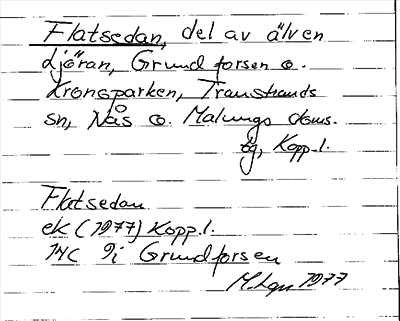 Flatsedan, del av älven
Ljöran, Grundforsen o.
Kronoparken, Transtrands
sn, Nås o. Malungs doms.
tg, Kopp.l.
Flatsedan
ek (1977) Kopp.l.
14C 9i Grundforsen
1977